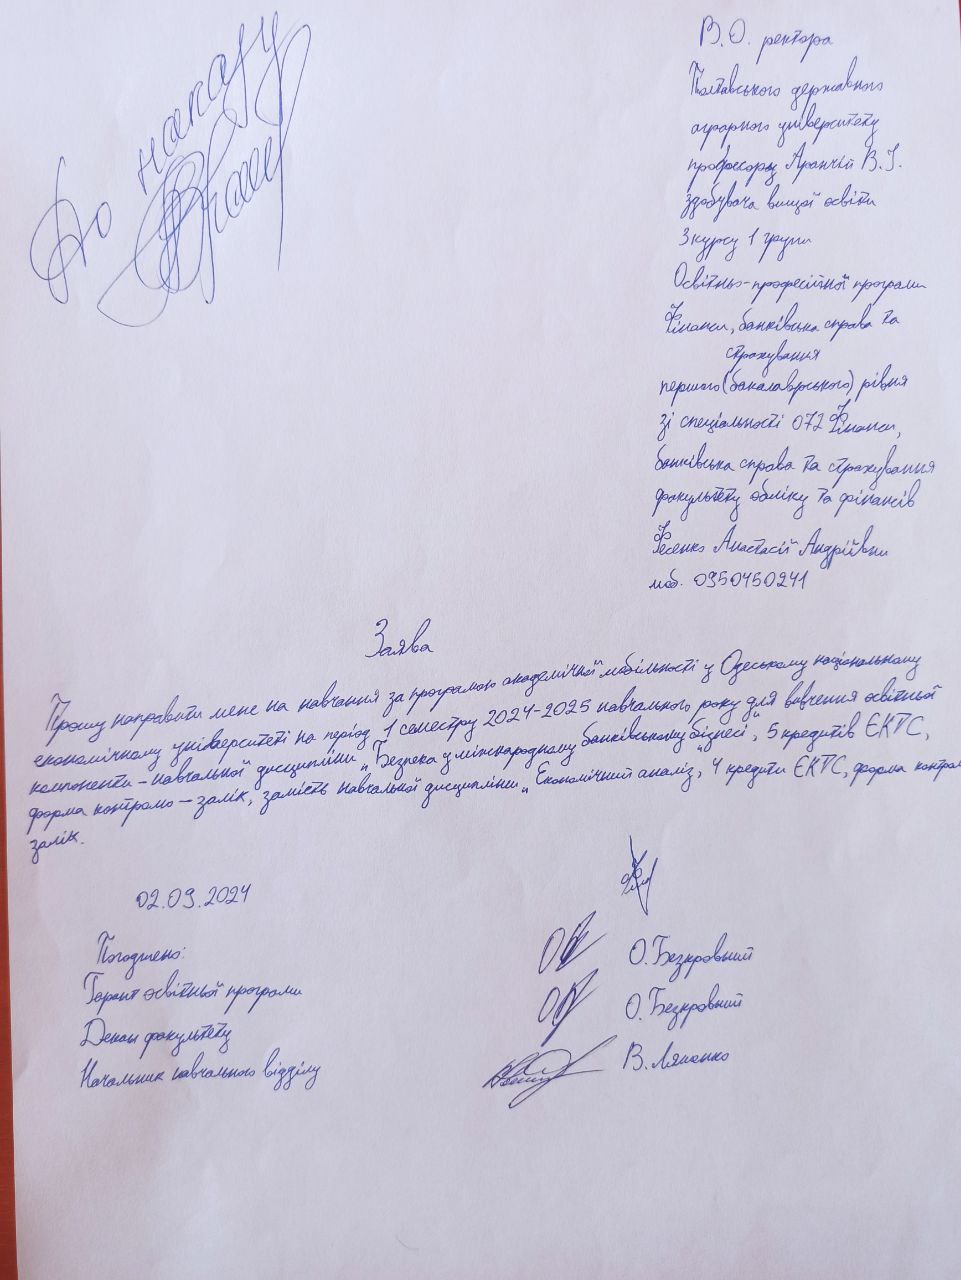 До наказу
В.О. ректора
Полтавського державного
аграрного університету
професору Аранчій В.І.
здобувача вищої освіти
3 курсу 1 групи
Освітньо-професійної програми
Фінанси, банківська справа та
страхування
першого (бакалаврського) рівня
зі спеціальності 072 Фінанси,
банківська справа та страхування
факультету обліку та фінансів
Фесенко Анастасії Андріївни
моб. 0950450241
Заява
Прошу направити мене на навчання за програмою академічної мобільності у Одеському національному
економічному університеті на період 1 семестру 2024-2025 навчального року для вивчення освітньої
компоненти – навчальної дисципліни „Безпека у міжнародному банківському бізнесі", 5 кредитів ЄКТС,
форма контролю – залік, замість навчальної дисципліни „Економічний аналіз, 4 кредити ЄКТС, форма контрол
залік.
02.09.2024
Погоджено:
Гарант освітньої програми О. Безкровний
Декан факультету О. Безкровний
Начальник навчального відділу В. Ляшенко